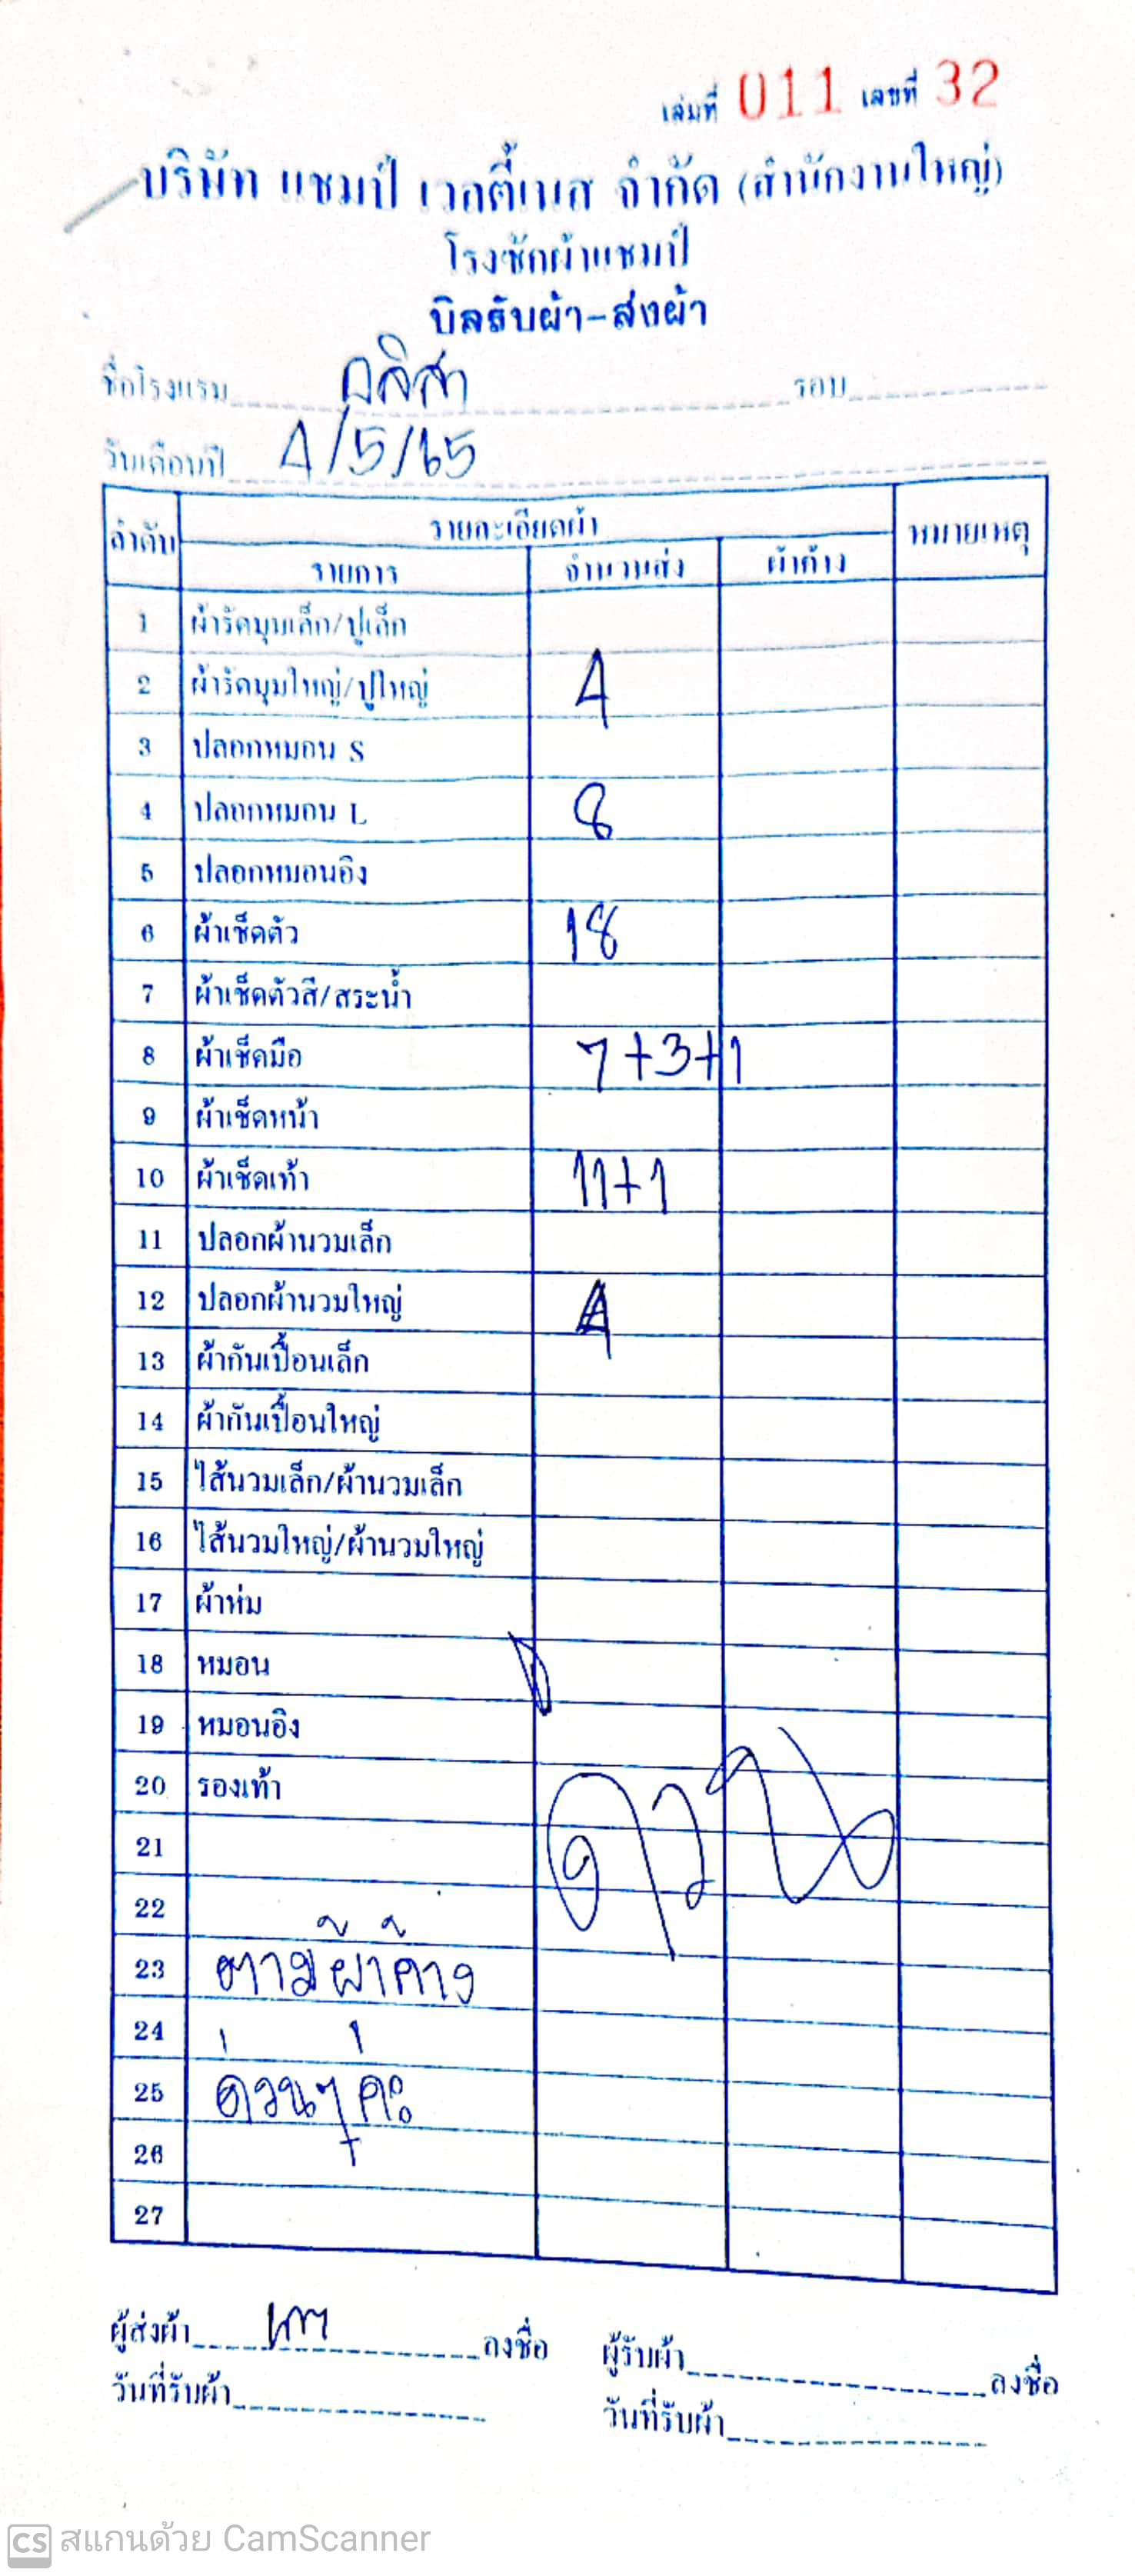 เล่มที่ 011 เลขที่ 32
บริษัท แชมป์ เวลตี้เนส จำกัด (สำนักงานใหญ่)
โรงซักผ้าแชมป์
บิลรับผ้า-ส่งผ้า
ชื่อโรงแรม กุลิสา รอบ
วันเดือนปี 4/5/65
ลำดับ รายละเอียดผ้า หมายเหตุ
รายการ จำนวนส่ง ผ้าค้าง
1 ผ้ารัดมุมเล็ก/ปูเล็ก
2 ผ้ารัดมุมใหญ่/ปูใหญ่ 4
3 ปลอกหมอน S
4 ปลอกหมอน L 8
5 ปลอกหมอนอิง
6 ผ้าเช็ดตัว 18
7 ผ้าเช็ดตัวสี/สระน้ำ
8 ผ้าเช็ดมือ 7+3+1
9 ผ้าเช็ดหน้า
10 ผ้าเช็ดเท้า 11+1
11 ปลอกผ้านวมเล็ก
12 ปลอกผ้านวมใหญ่ 4
13 ผ้ากันเปื้อนเล็ก
14 ผ้ากันเปื้อนใหญ่
15 ไส้นวมเล็ก/ผ้านวมเล็ก
16 ไส้นวมใหญ่/ผ้านวมใหญ่
17 ผ้าห่ม
18 หมอน
19 หมอนอิง
20 รองเท้า
21 ด่วน
22
23 ตามผ้าค้าง
24
25 ด่วนๆค่ะ
26
27
ผู้ส่งผ้า ลงชื่อ ผู้รับผ้า ลงชื่อ
วันที่รับผ้า วันที่รับผ้า
CS สแกนด้วย CamScanner